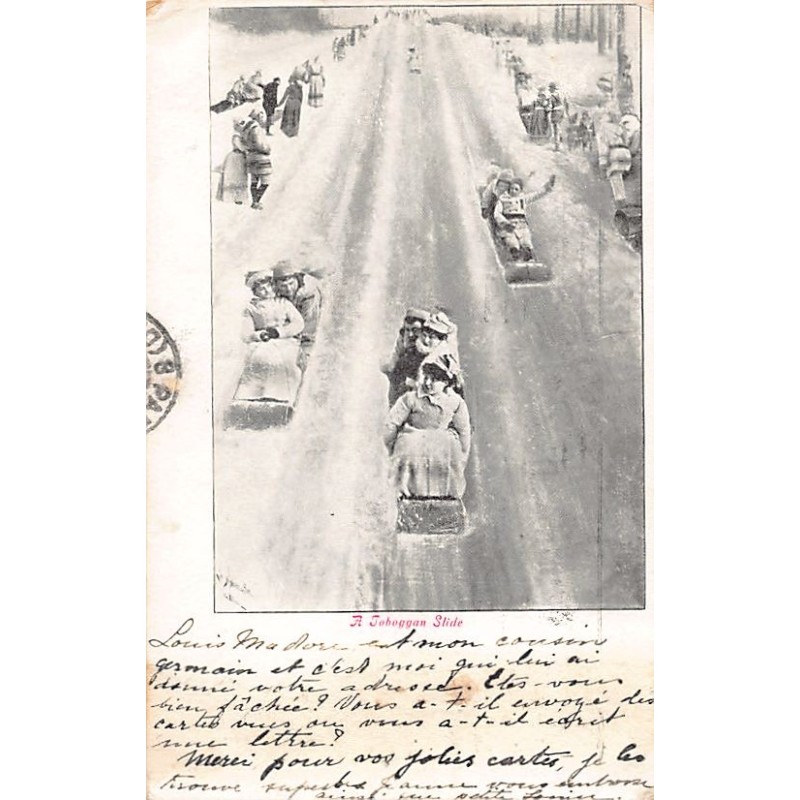 8 PA
A Toboggan Slide
Louis Madore est mon cousin
germain et c'est moi qui lui ai
donné votre adresse. Etes-vous
bien fâchée? Vous a-t-il envoyé des
cartes vues ou vous a-t-il ecrit
une lettre?
Merci pour vos jolies cartes, je les
trouve superbes Jeanne vous embrasse
ainsi que petite